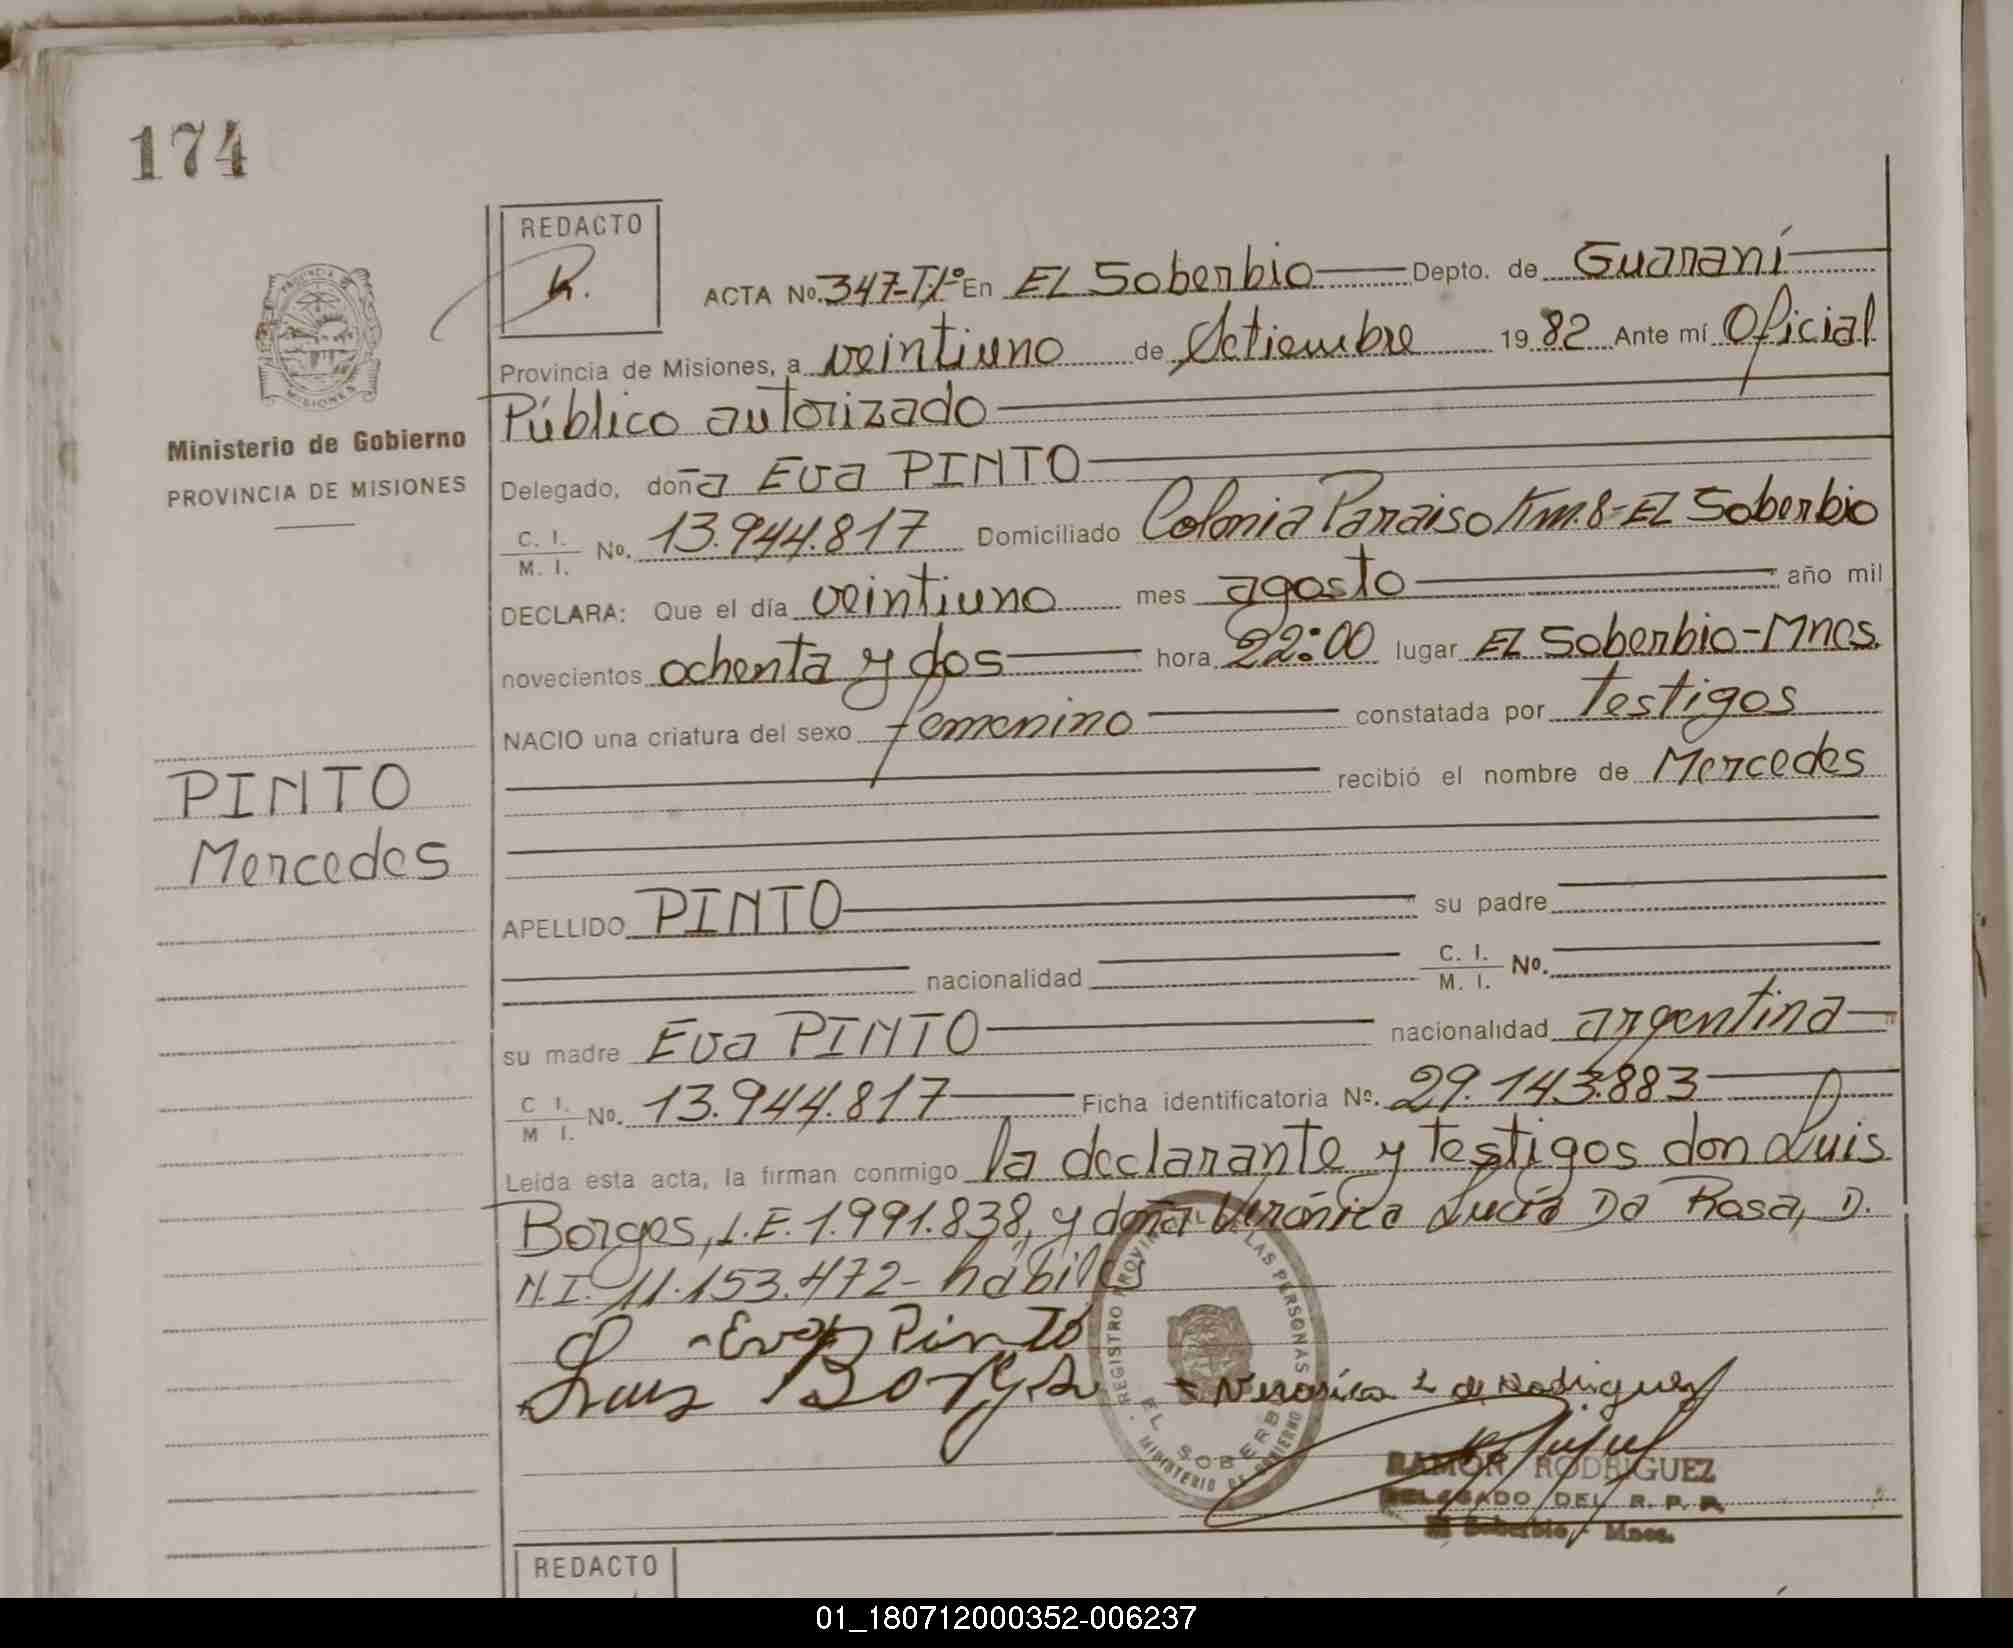 174
REDACTO
R.
PROVINCIA
MISIONES
Ministerio de Gobierno
PROVINCIA DE MISIONES
PINTO
Mercedes
ACTA No. 347-Tº1º En EL Soberbio Depto. de Guaraní
Provincia de Misiones, a veintiuno de Setiembre 1982 Ante mí Oficial
Público autorizado
Delegado, doña Eva PINTO
C. I. / M. I. No. 13.944.817 Domiciliado Colonia Paraiso Km.8-EL Soberbio
DECLARA: Que el día veintiuno mes agosto año mil
novecientos ochenta y dos hora 22:00 lugar EL Soberbio-Mnes.
NACIO una criatura del sexo femenino constatada por testigos
recibió el nombre de Mercedes
APELLIDO PINTO su padre
nacionalidad C. I. / M. I. No.
su madre Eva PINTO nacionalidad argentina
C I. / M I. No. 13.944.817 Ficha identificatoria Nº. 29.143.883
Leída esta acta, la firman conmigo la declarante y testigos don Luis
Borges, L.E. 1.991.838, y doña Verónica Lucía Da Rosa, D.
N.I. 11.153.472- hábiles
Eva Pinto
Luis Borges Veronica L de Rodriguez
REGISTRO PROVINCIAL DE LAS PERSONAS
EL SOBERBIO
MINISTERIO DE GOBIERNO
RAMON RODRIGUEZ
DELEGADO DEL R. P. P.
El Soberbio - Mnes.
REDACTO
01_180712000352-006237